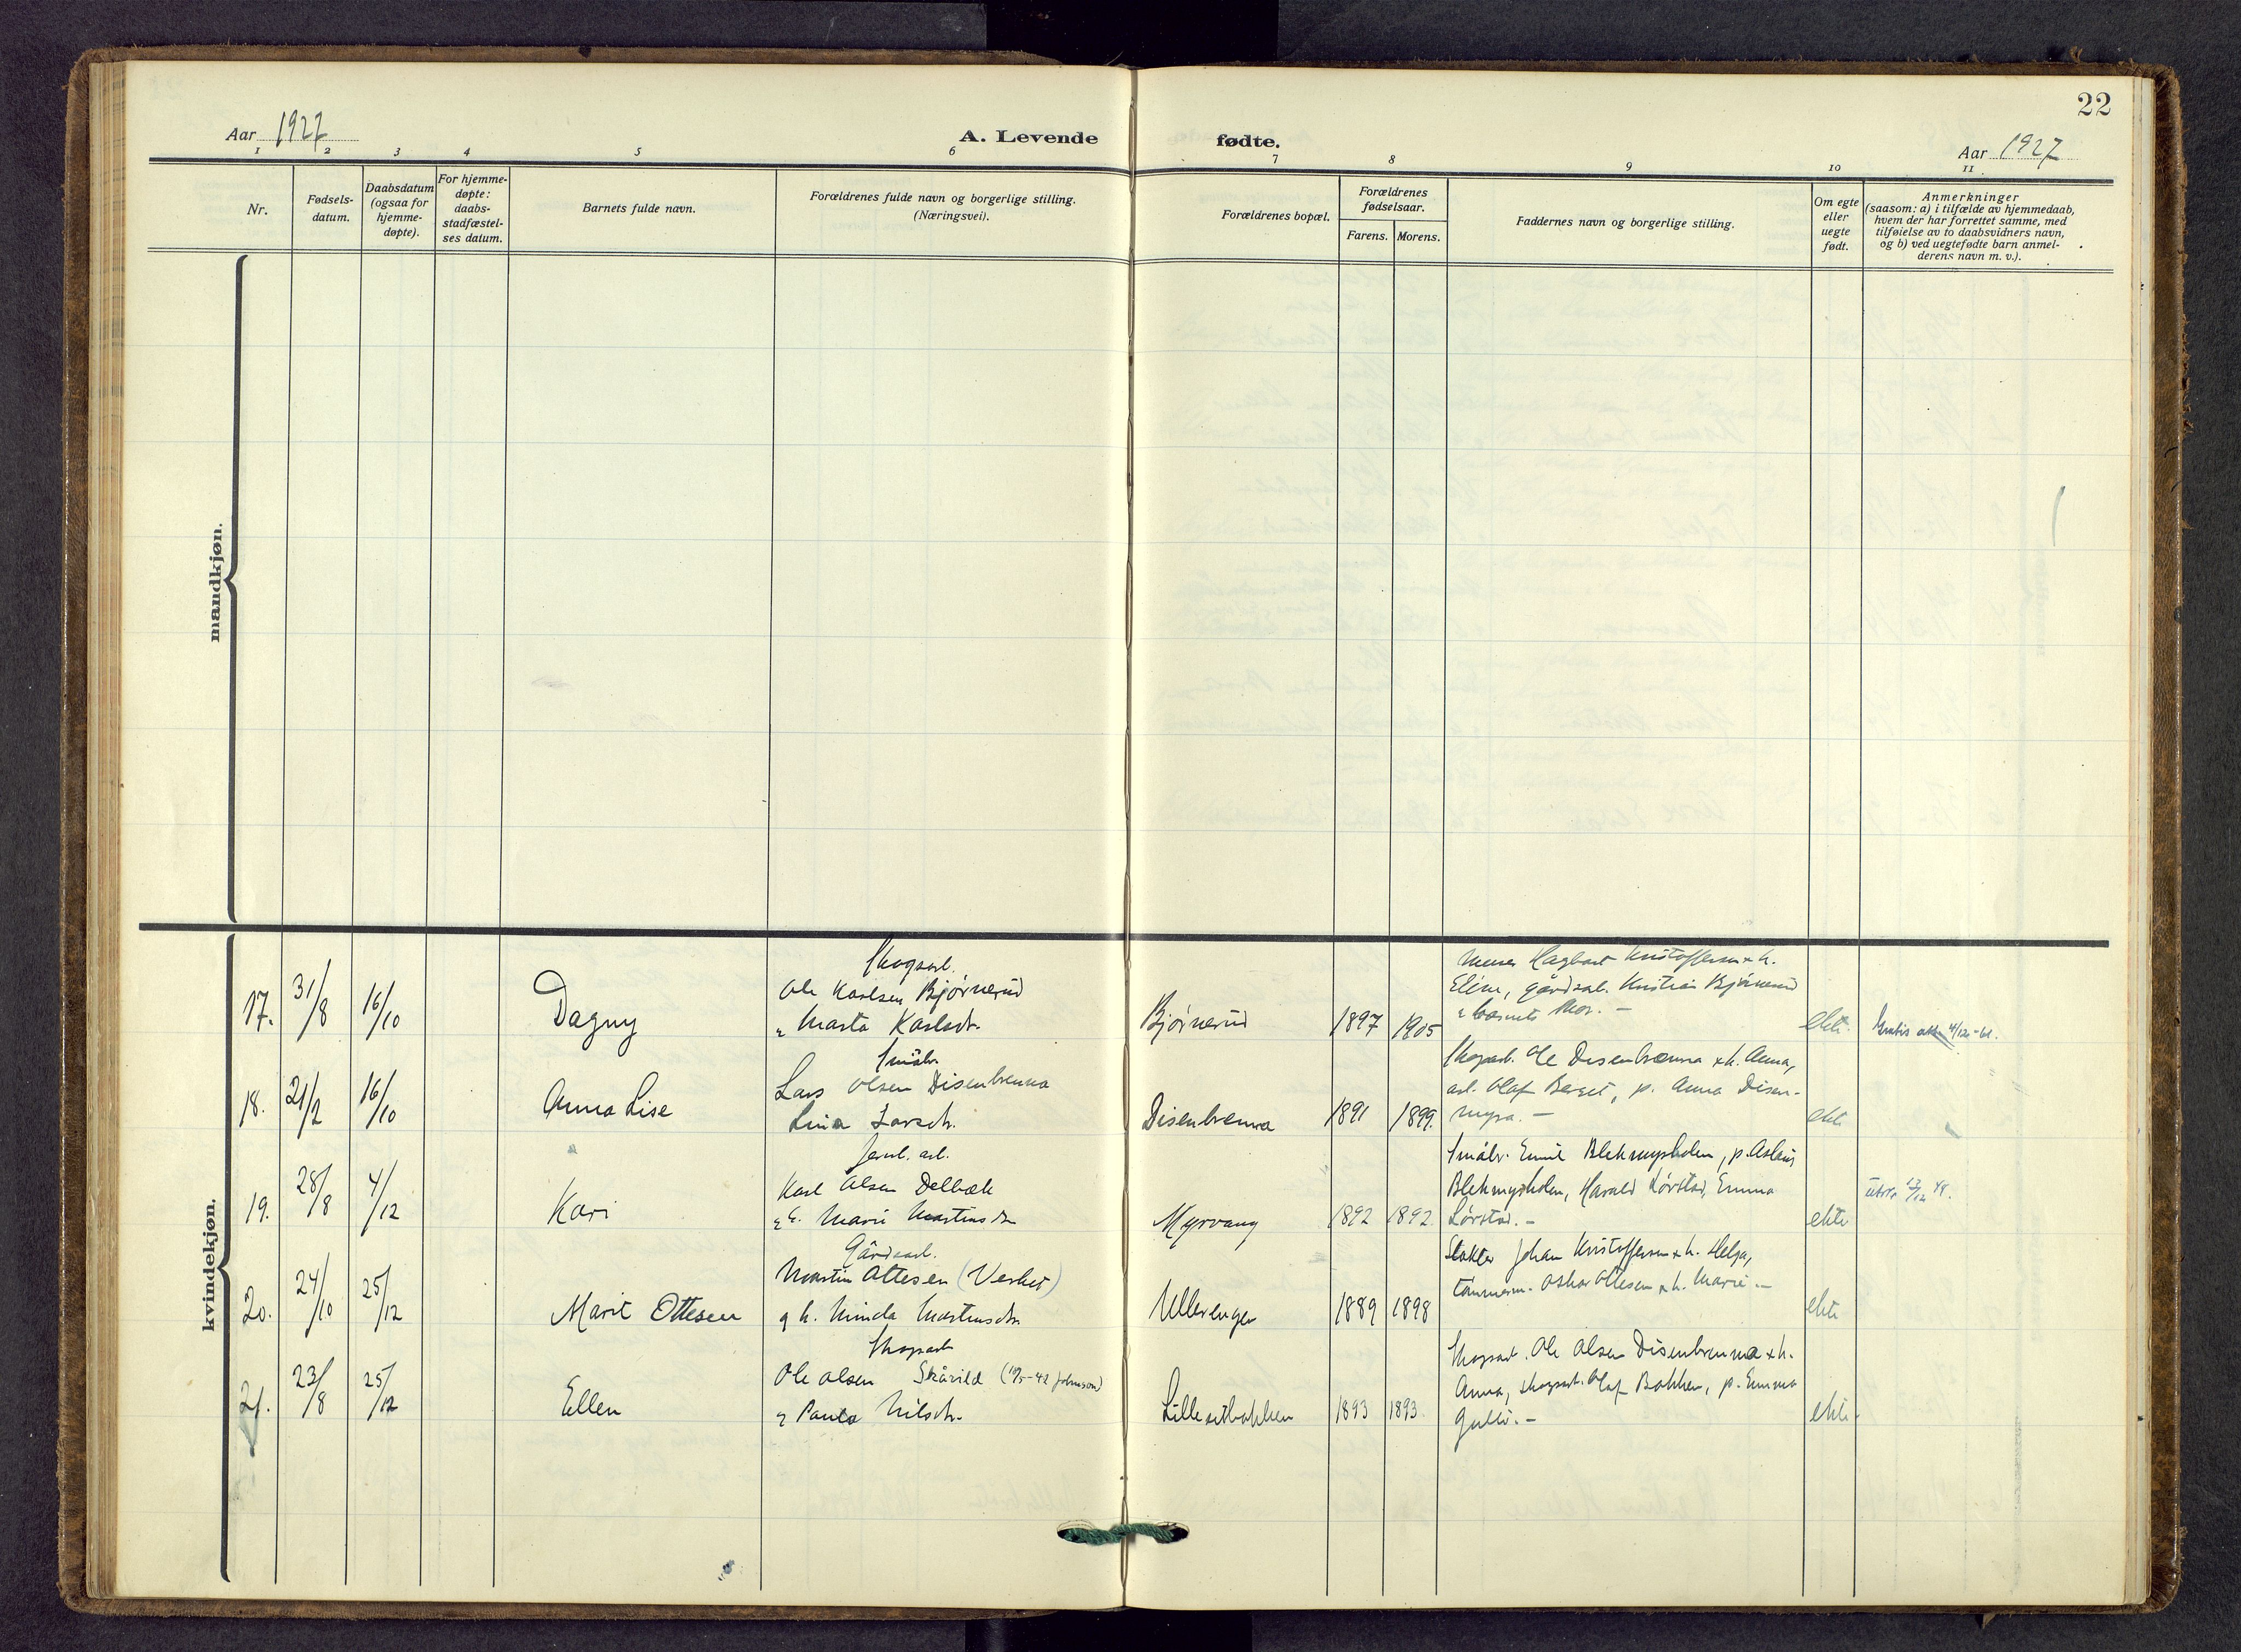 22
Aar 1927
A. Levende
fødte.
Aar 1927
1 2 3 4 5 6 7 8 9 10 11
Nr.
Fødsels-
datum.
Daabsdatum
(ogsaa for
hjemme-
døpte).
For hjemme-
døpte:
daabs-
stadfæstel-
ses datum.
Barnets fulde navn.
Forældrenes fulde navn og borgerlige stilling.
(Næringsvei).
Forældrenes bopæl.
Forældrenes
fødselsaar.
Farens. Morens.
Faddernes navn og borgerlige stilling.
Om egte
eller
uegte
født.
Anmerkninger
(saasom: a) i tilfælde av hjemmedaab,
hvem der har forrettet samme, med
tilføielse av to daabsvidners navn,
og b) ved uegtefødte barn anmel-
derens navn m. v.).
mandkjøn.
kvindekjøn.
17. 31/8 16/10 Dagny
Skogsarb.
Ole Karlsen Bjørnerud
Marta Karlsdtr.
Bjørnerud 1897 1905
Hagbart Kristoffersen & h.
Eline, gårdsarb. Kristian Bjørnerud
& barnets Mor. -
ekte
Gratis 4/12-61.
18. 21/2 16/10 Anna Lise
Småbr.
Lars Olsen Disenbrenna
Lina Larsdtr.
Disenbrenna 1891 1899.
Skogarb. Ole Disenbrenna & h. Anna,
arb. Olaf Berget, p. Anna Disen-
myra. -
ekte
19. 28/8 4/12 Kari
Jernb. arb.
Karl Olsen Delbæk
Marie Martinsdtr
Myrvang 1892 1892.
Småbr. Emil Blekmyrholen, p. Aslaug
Blekmyrholen, Harald Kørstad, Emma
Kørstad. -
ekte
12/12 48.
20. 24/10 25/12 Marit Ottesen
Gårdsarb.
Martin Ottesen (Verket)
g h. Minda Martinsdtr.
Ullerengen 1889 1898
Slakter Johan Kristoffersen & h. Helga,
tømmerm. Oskar Ottesen & h. Marie. -
ekte
21. 23/8 25/12 Ellen
Skogsarb
Ole Olsen Skårild
Paula Nilsdtr.
Lillesetbakken 1893 1893.
Skogsarb. Ole Olsen Disenbrenna & h.
Anna, skogsarb. Olaf Bakken, p. Emma
ekte